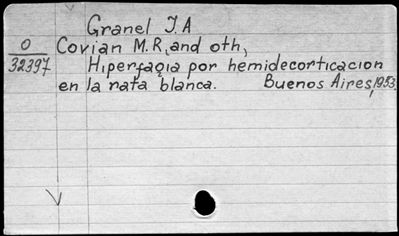 Granel J.A
O Covian M.R, and oth,
32397 Hiperfagia por hemidecorticacion
en la rata blanca. Buenos Aires, 1953.